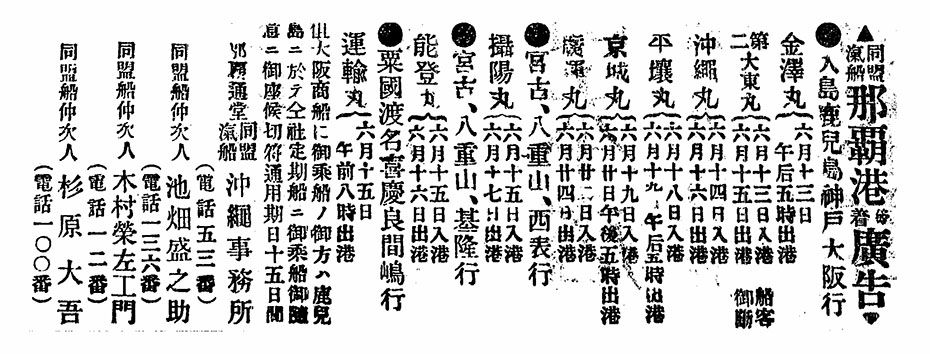 ▲同盟汽船那覇港發着廣告▼
●大島鹿兒島神戸大阪行
金澤丸 六月十三日午后五時出港
第二大東丸 六月十三日入港 六月十五日出港 船客御斷
沖繩丸 六月十四日入港 六月十四日出港
平壤丸 六月十八日入港 六月十九、午后五時出港
京城丸 六月十九日入港 六月廿日午後五時出港
廣運丸 六月廿二日入港 六月廿四日出港
●宮古、八重山、西表行
攝陽丸 六月十五日入港 六月十七日出港
●宮古、八重山、基隆行
能登丸 六月十五日入港 六月十六日出港
●粟國渡名喜慶良間嶋行
運輸丸 六月十五日午前八時出港
但大阪商船ニ御乘船ノ御方ハ鹿兒
島ニ於テ仝社定期船ニ御乘船御隨
意ニ御座候切符通用期日十五日間
那覇通堂 同盟汽船 沖繩事務所
(電話五三番)
同盟船仲次人 池畑盛之助
(電話一三六番)
同盟船仲次人 木村榮左工門
(電話一一二番)
同盟船仲次人 杉原大吾
(電話一〇〇番)